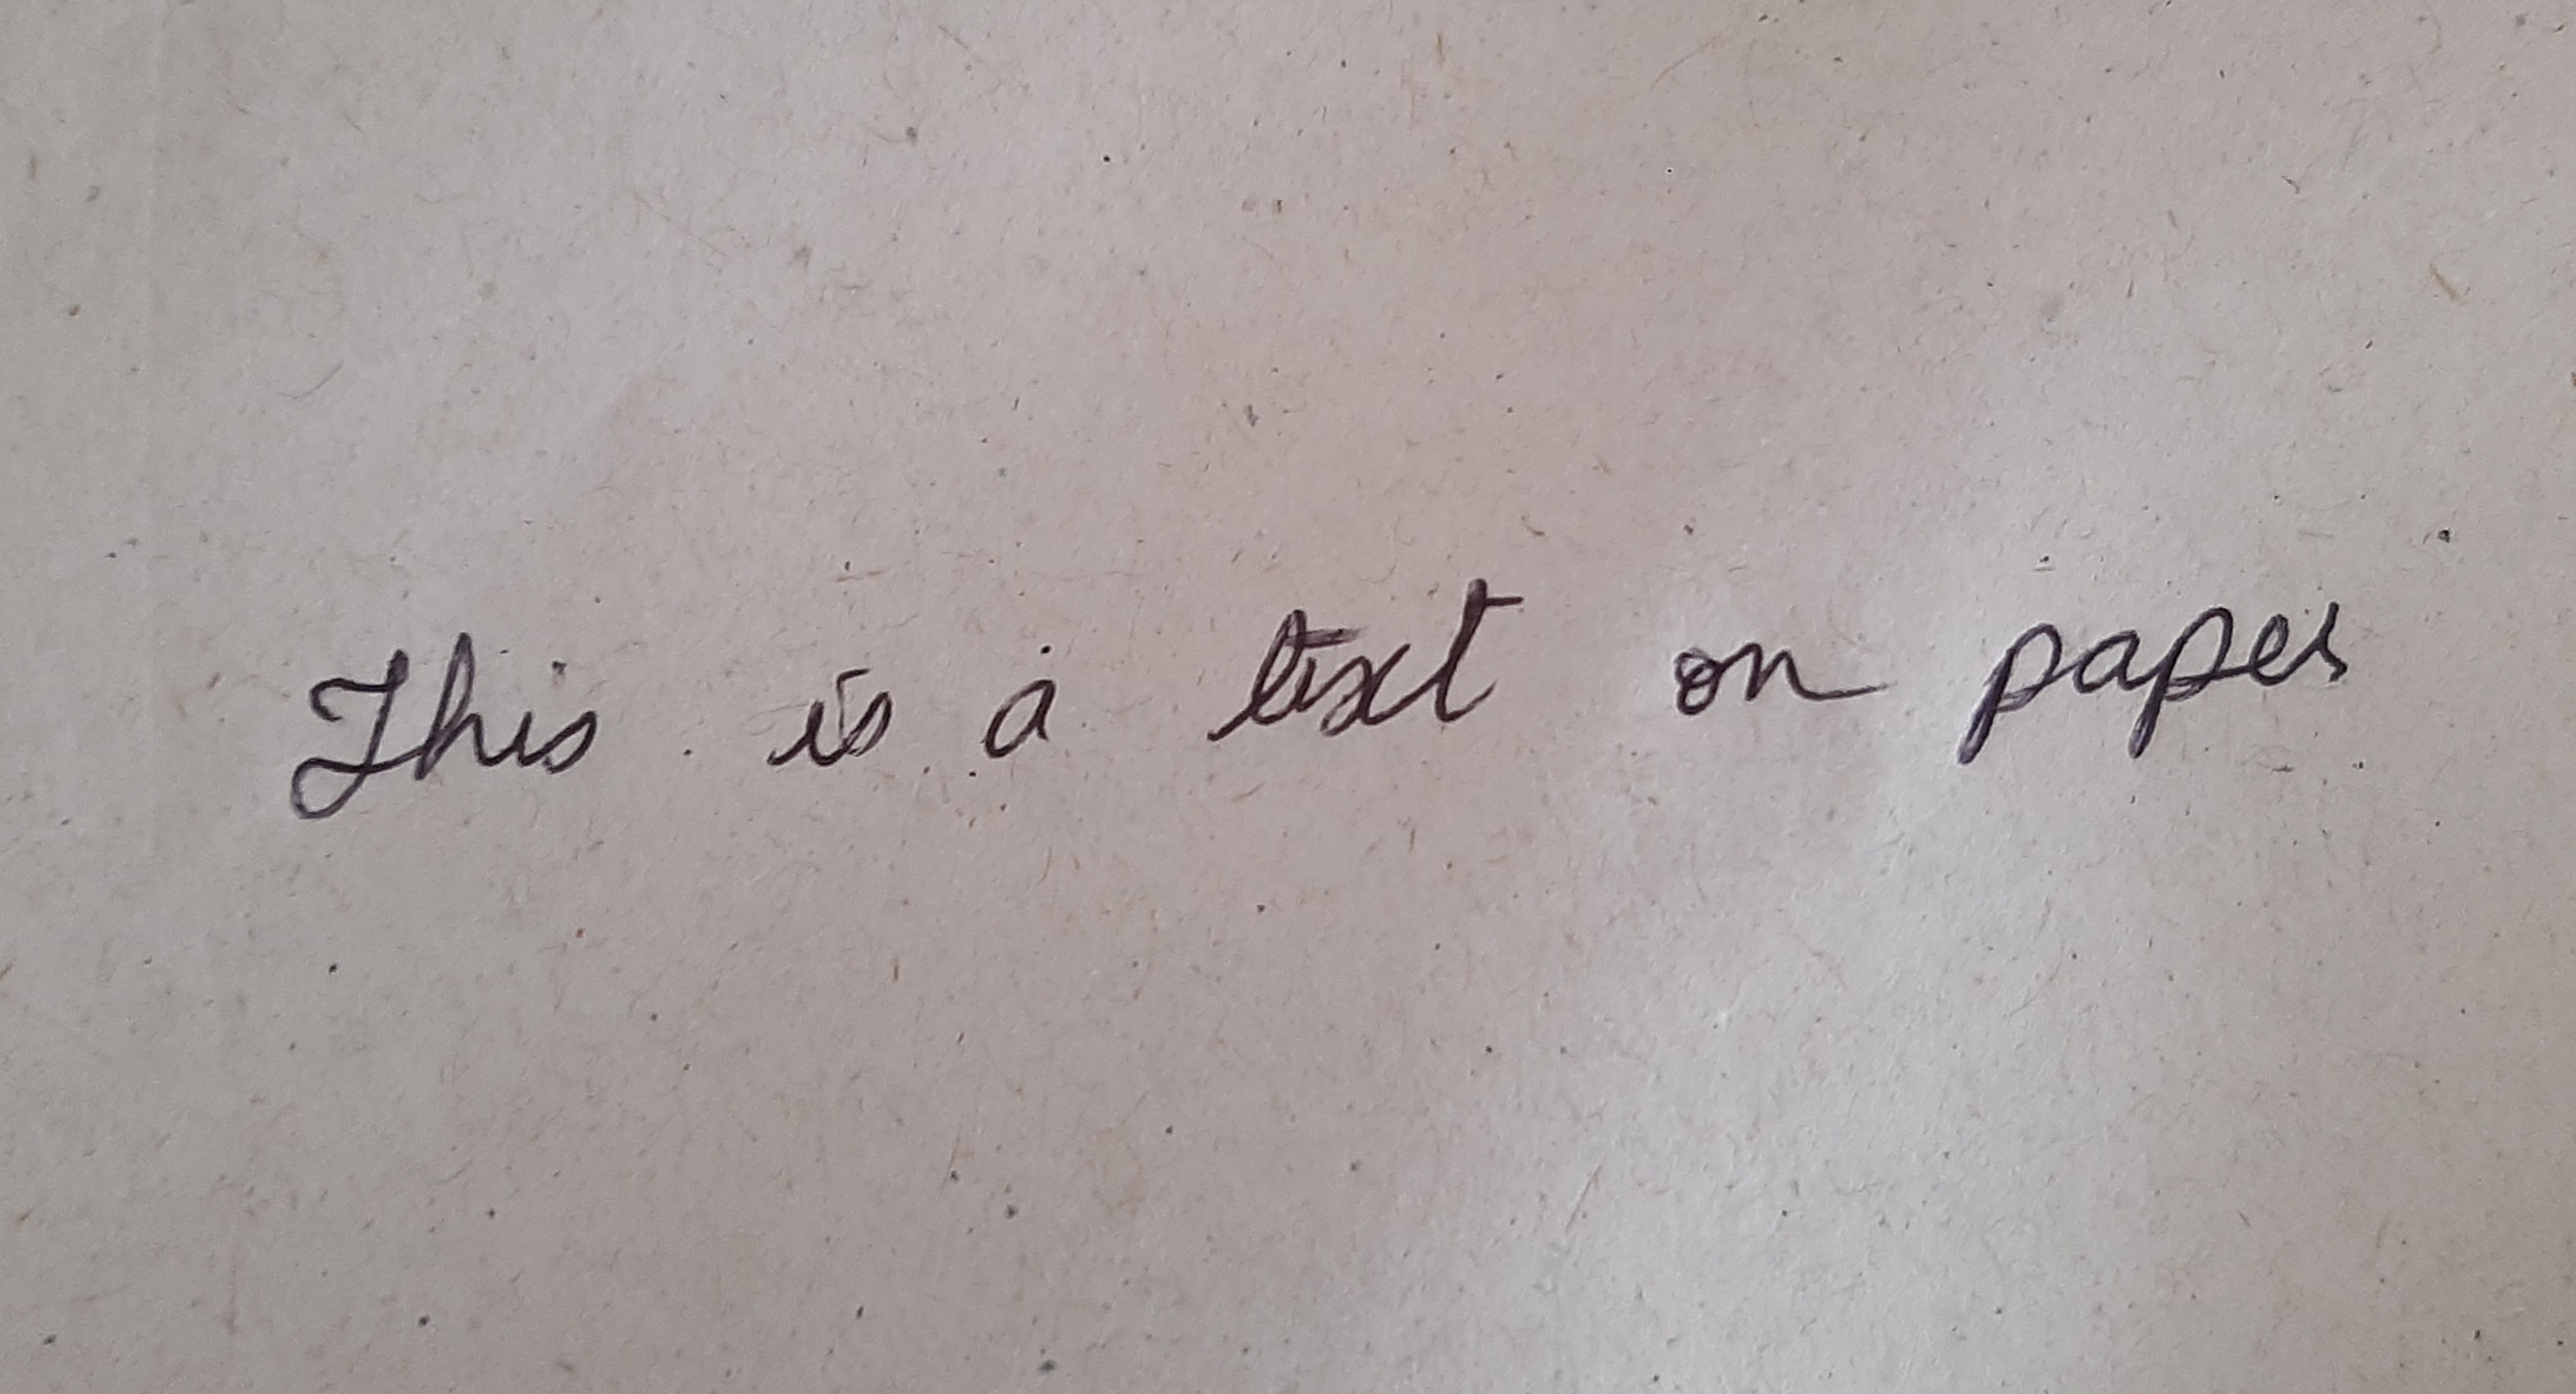 This is a text on paper